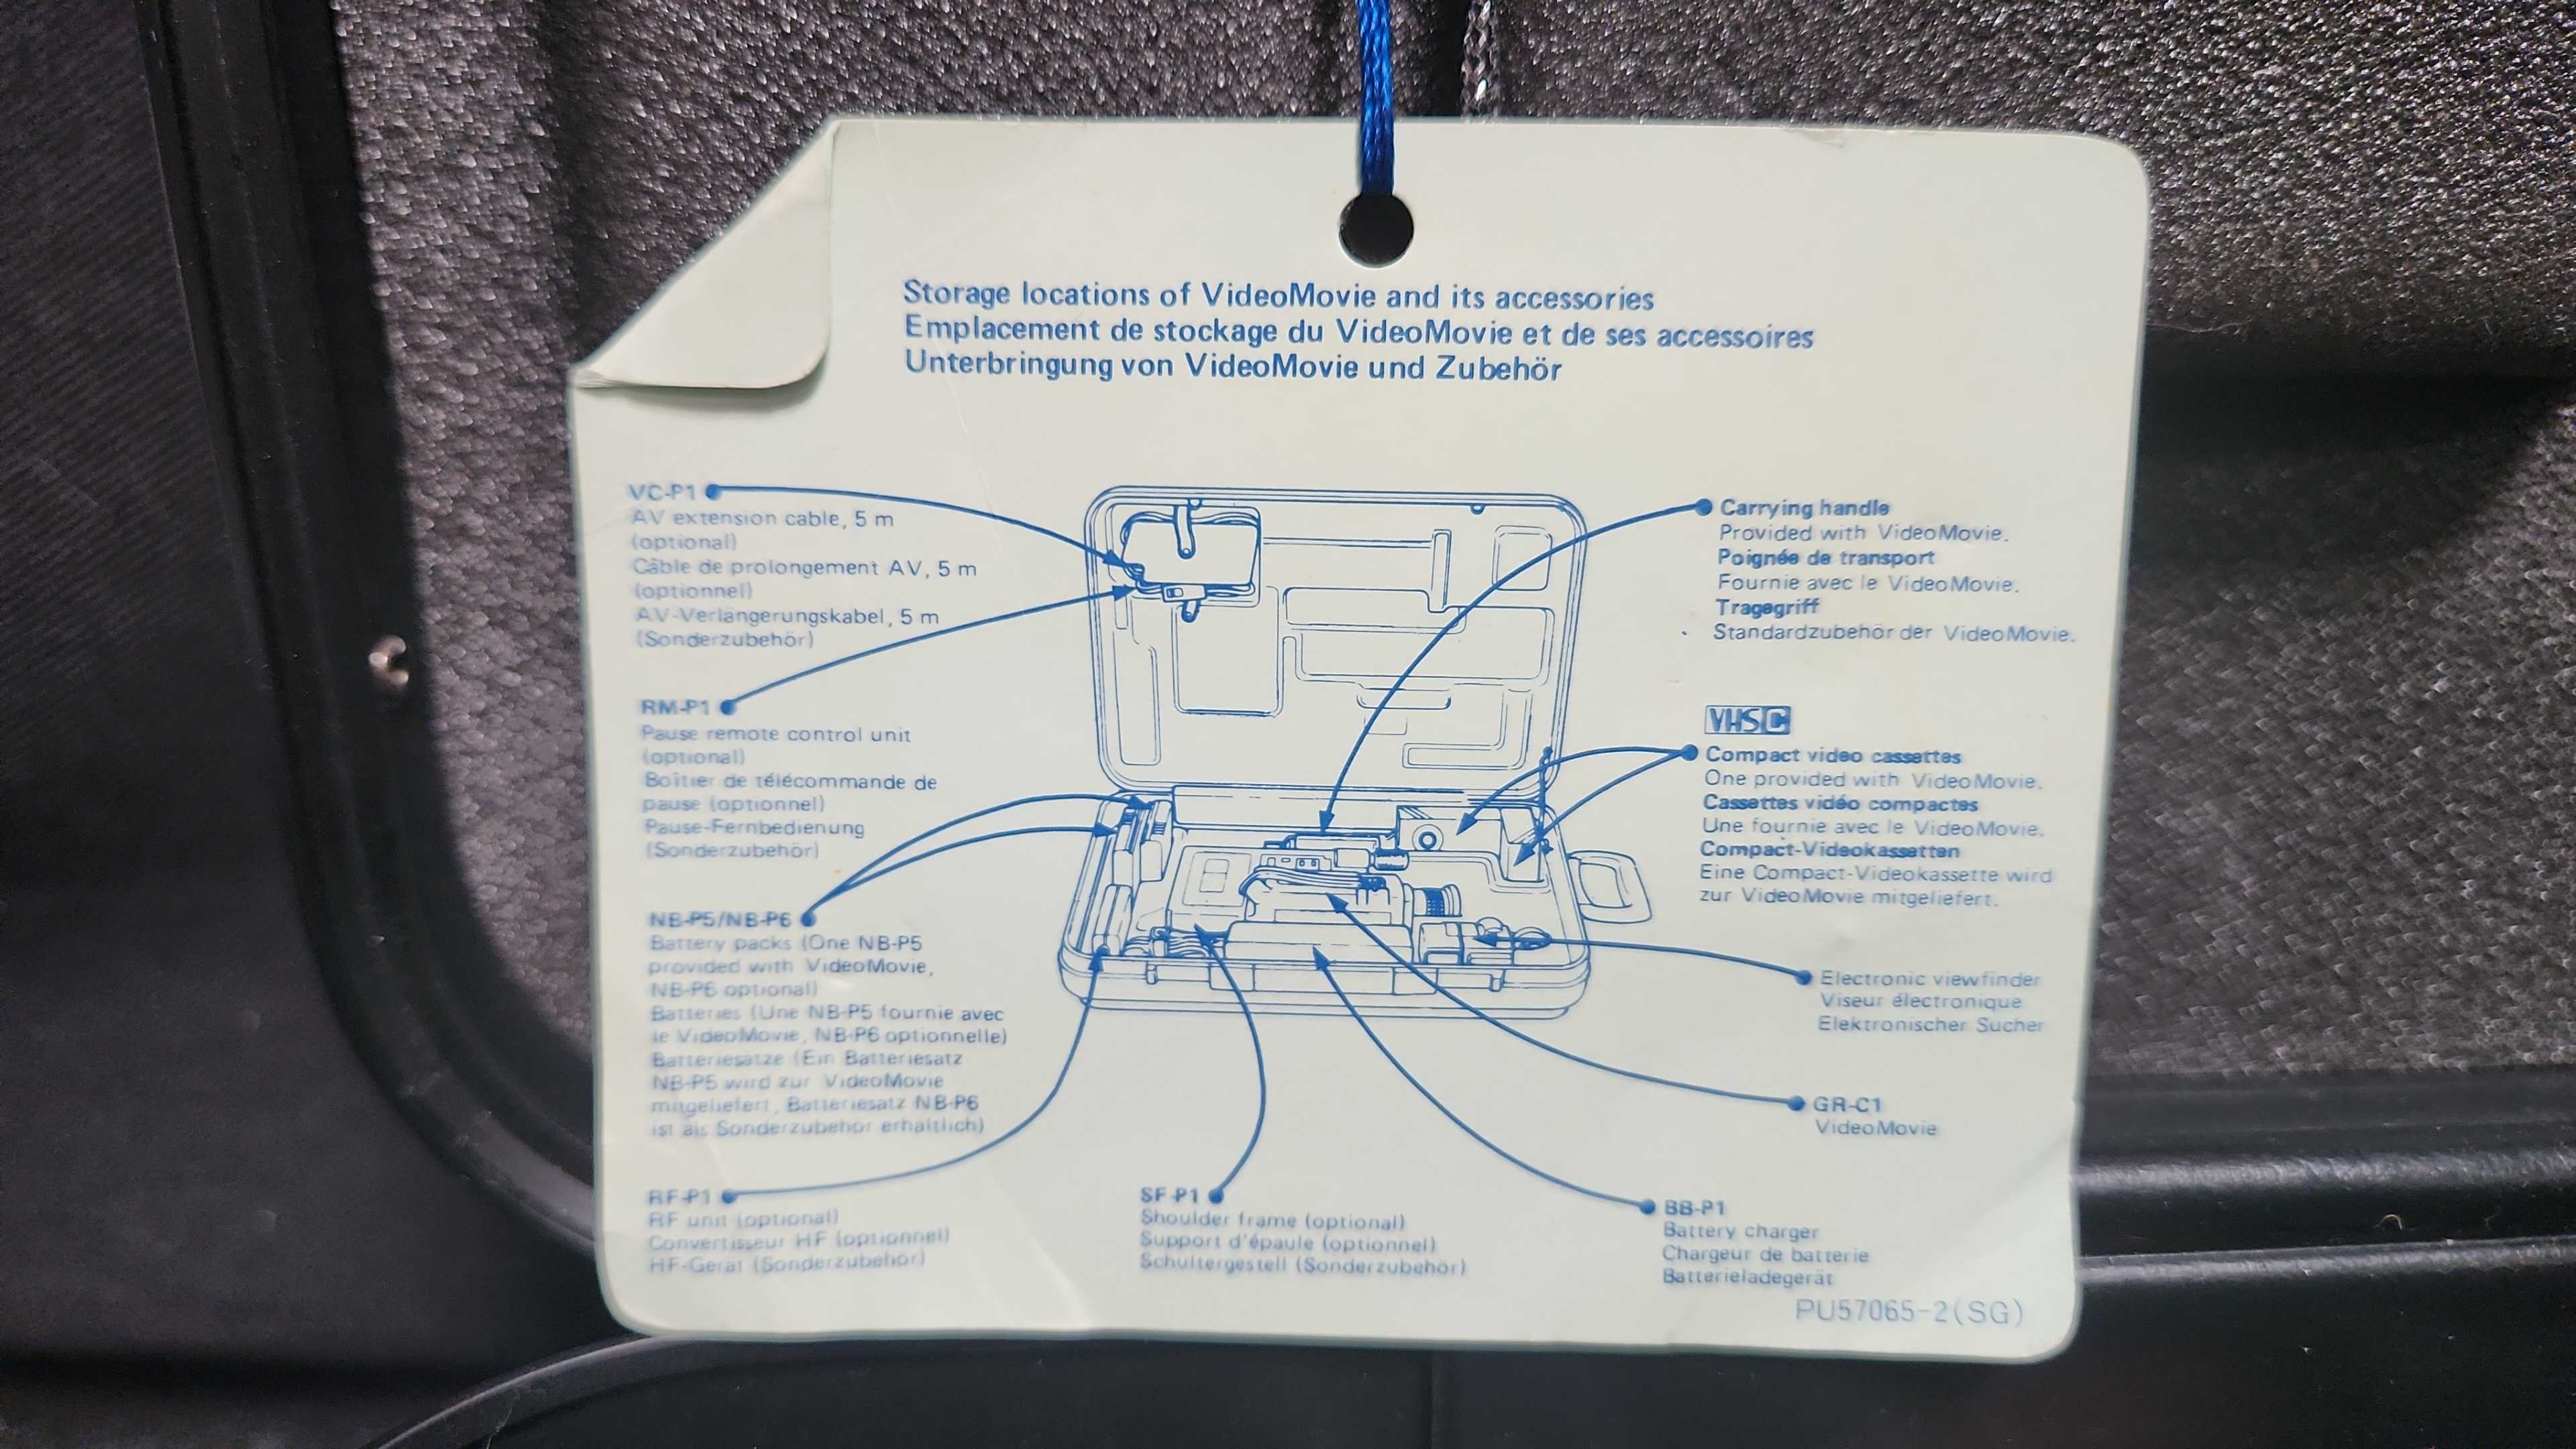 Storage locations of VideoMovie and its accessories
Emplacement de stockage du VideoMovie et de ses accessoires
Unterbringung von VideoMovie und Zubehör
VC-P1
AV extension cable, 5 m
(optional)
Câble de prolongement AV, 5 m
(optionnel)
AV-Verlängerungskabel, 5 m
(Sonderzubehör)
RM-P1
Pause remote control unit
(optional)
Boîtier de télécommande de
pause (optionnel)
Pause-Fernbedienung
(Sonderzubehör)
NB-P5/NB-P6
Battery packs (One NB-P5
provided with VideoMovie,
NB-P6 optional)
Batteries (Une NB-P5 fournie avec
le VideoMovie, NB-P6 optionnelle)
Batteriesätze (Ein Batteriesatz
NB-P5 wird zur VideoMovie
mitgeliefert, Batteriesatz NB-P6
ist als Sonderzubehör erhältlich)
RF-P1
RF unit (optional)
Convertisseur HF (optionnel)
HF-Gerät (Sonderzubehör)
SF-P1
Shoulder frame (optional)
Support d'épaule (optionnel)
Schultergestell (Sonderzubehör)
Carrying handle
Provided with VideoMovie.
Poignée de transport
Fournie avec le VideoMovie.
Tragegriff
Standardzubehör der VideoMovie.
VHS C
Compact video cassettes
One provided with VideoMovie.
Cassettes vidéo compactes
Une fournie avec le VideoMovie.
Compact-Videokassetten
Eine Compact-Videokassette wird
zur VideoMovie mitgeliefert.
Electronic viewfinder
Viseur électronique
Elektronischer Sucher
GR-C1
VideoMovie
BB-P1
Battery charger
Chargeur de batterie
Batterieladegerät
PU57065-2(SG)